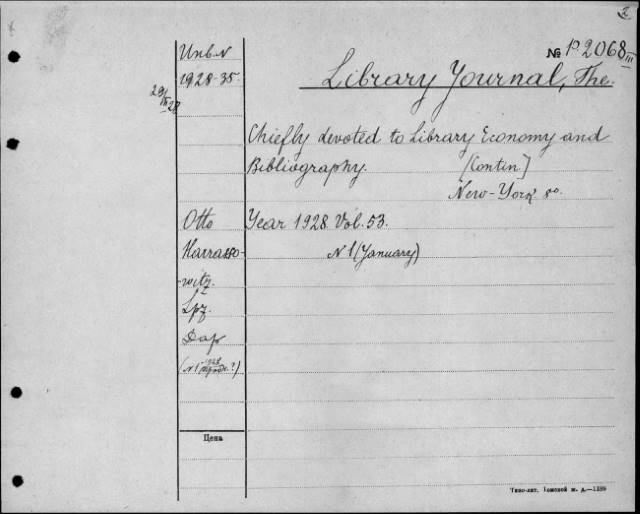 Инв. N
1928-35.
29/III 28
№ P 2068 III
Library Journal, The.
Chiefly devoted to Library Economy and
Bibliography. [Contin]
New-York 8°.
Otto
Harrasso-
witz.
Lpz.
Дар
(N 1 1928 ?)
Year 1928. Vol. 53.
N 1 (January)
Цена
Типо-лит. Томской ж. д.—1399